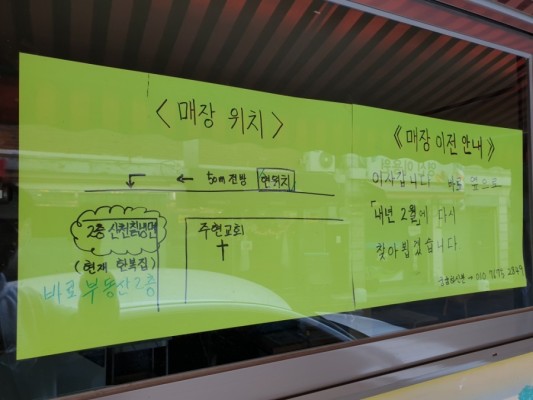 < 매장 위치 >
← 50m 전방 현위치
2층 산천칡냉면
(현재 한복집)
바로 부동산 2층
주현교회
《 매장 이전 안내 》
이사갑니다! 바로 옆으로
「내년 2월」에 다시
찾아 뵙겠습니다
→ 010 7675 2829